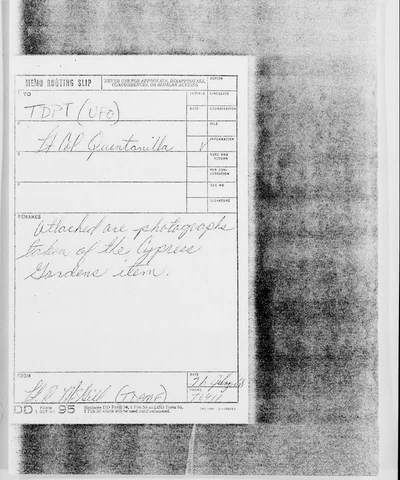 MEMO ROUTING SLIP
NEVER USE FOR APPROVALS, DISAPPROVALS,
CONCURRENCES, OR SIMILAR ACTIONS
ACTION
1 TO
INITIALS
CIRCULATE
TDPT (UFO)
DATE
COORDINATION
2
FILE
Lt Col Quintanilla
INFORMATION
✓
3
NOTE AND
RETURN
PER CON-
VERSATION
4
SEE ME
SIGNATURE
REMARKS
Attached are photographs
taken of the Cypress
Gardens item.
FROM
DATE
PHONE
DD FORM 95